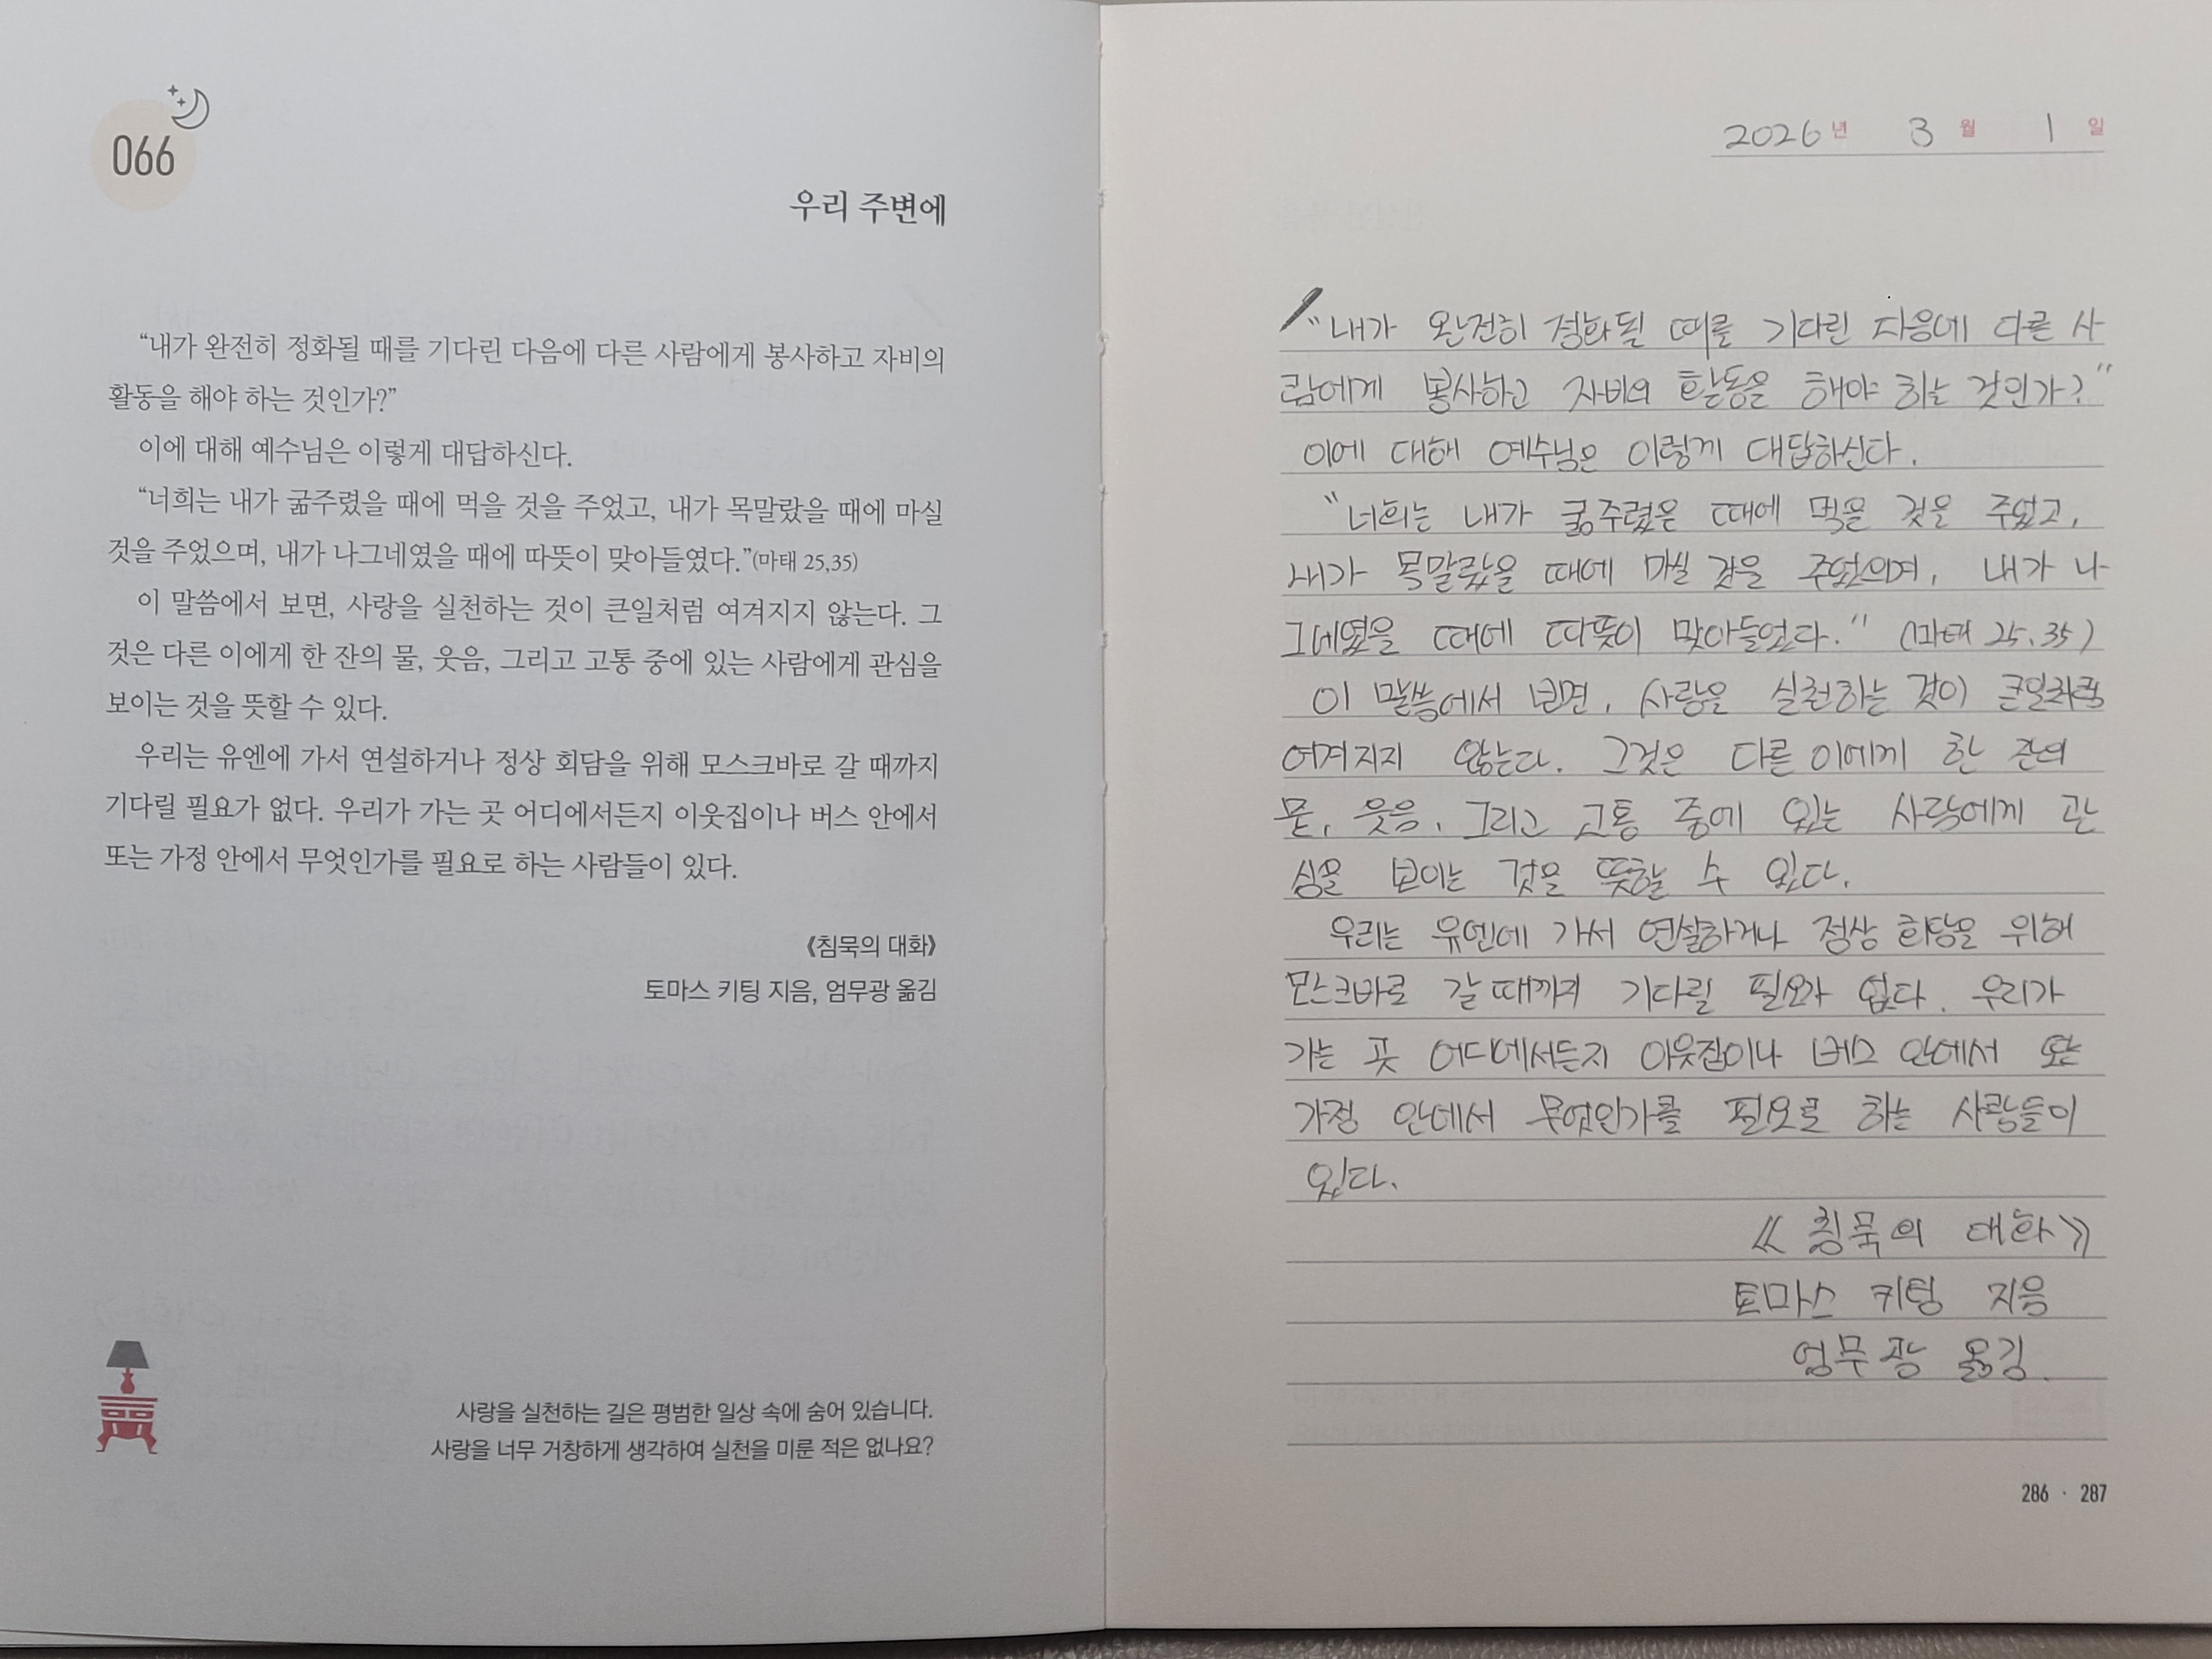 066
우리 주변에
“내가 완전히 정화될 때를 기다린 다음에 다른 사람에게 봉사하고 자비의
활동을 해야 하는 것인가?”
이에 대해 예수님은 이렇게 대답하신다.
“너희는 내가 굶주렸을 때에 먹을 것을 주었고, 내가 목말랐을 때에 마실
것을 주었으며, 내가 나그네였을 때에 따뜻이 맞아들였다.”(마태 25,35)
이 말씀에서 보면, 사랑을 실천하는 것이 큰일처럼 여겨지지 않는다. 그
것은 다른 이에게 한 잔의 물, 웃음, 그리고 고통 중에 있는 사람에게 관심을
보이는 것을 뜻할 수 있다.
우리는 유엔에 가서 연설하거나 정상 회담을 위해 모스크바로 갈 때까지
기다릴 필요가 없다. 우리가 가는 곳 어디에서든지 이웃집이나 버스 안에서
또는 가정 안에서 무엇인가를 필요로 하는 사람들이 있다.
《침묵의 대화》
토마스 키팅 지음, 엄무광 옮김
사랑을 실천하는 길은 평범한 일상 속에 숨어 있습니다.
사랑을 너무 거창하게 생각하여 실천을 미룬 적은 없나요?
2026년 3월 1일
“내가 완전히 정화될 때를 기다린 다음에 다른 사
람에게 봉사하고 자비의 활동을 해야 하는 것인가?”
이에 대해 예수님은 이렇게 대답하신다.
“너희는 내가 굶주렸을 때에 먹을 것을 주었고,
내가 목말랐을 때에 마실 것을 주었으며, 내가 나
그네였을 때에 따뜻이 맞아들였다.” (마태 25.35)
이 말씀에서 보면, 사랑을 실천하는 것이 큰일처럼
여겨지지 않는다. 그것은 다른 이에게 한 잔의
물, 웃음, 그리고 고통 중에 있는 사람에게 관
심을 보이는 것을 뜻할 수 있다.
우리는 유엔에 가서 연설하거나 정상 회담을 위해
모스크바로 갈 때까지 기다릴 필요가 없다. 우리가
가는 곳 어디에서든지 이웃집이나 버스 안에서 또는
가정 안에서 무엇인가를 필요로 하는 사람들이
있다.
《침묵의 대화》
토마스 키팅 지음
엄무광 옮김.
286 · 287